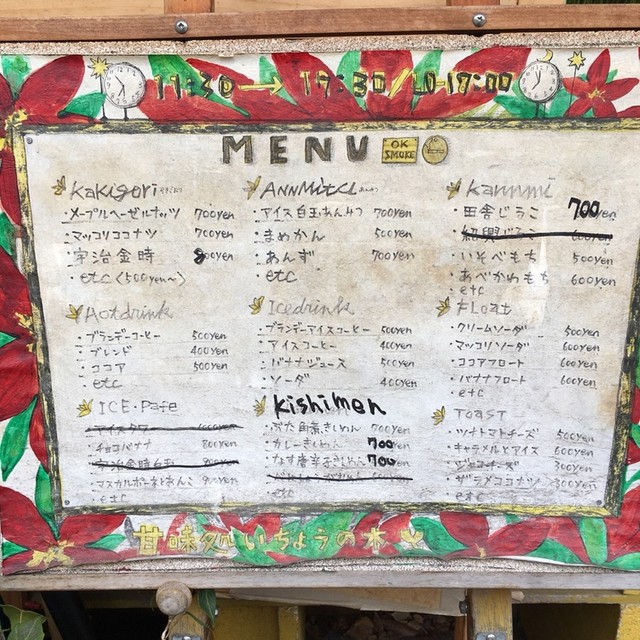 11:30 → 17:30/LO-17:00
MENU OK SMOKE
KaKigori
・メープルヘーゼルナッツ 700yen
・マッコリココナツ 700yen
・宇治金時 800yen
・etc(500yen〜)
ANNMitCU
・アイス白玉あんみつ 700yen
・まめかん 500yen
・あんず 700yen
・etc
Kannmi
・田舎じるこ 700yen
・いそべもち 500yen
・あべかわもち 600yen
・etc
Hotdrink
・ブランデーコーヒー 500yen
・ブレンド 400yen
・ココア 500yen
・etc
Icedrink
・ブランデーアイスコーヒー 500yen
・アイスコーヒー 400yen
・バナナジュース 500yen
・ソーダ 400yen
FLoat
・クリームソーダ 500yen
・マッコリソーダ 600yen
・ココアフロート 600yen
・バナナフロート 600yen
・etc
ICE・Pafe
・アイスタワー 1000yen
・チョコバナナ 800yen
・宇治金時白玉 900yen
・マスカルポーネとあんこ 900yen
・etc
Kishimen
・ぶた角煮きしめん 700yen
・カレーきしめん 700yen
・なす唐辛子きしめん 700yen
・etc
TOAST
・ツナトマトチーズ 500yen
・キャラメルとアイス 600yen
・ジャコチーズ 300yen
・ザラメココナツ 300yen
・etc
甘味処いちょうの木